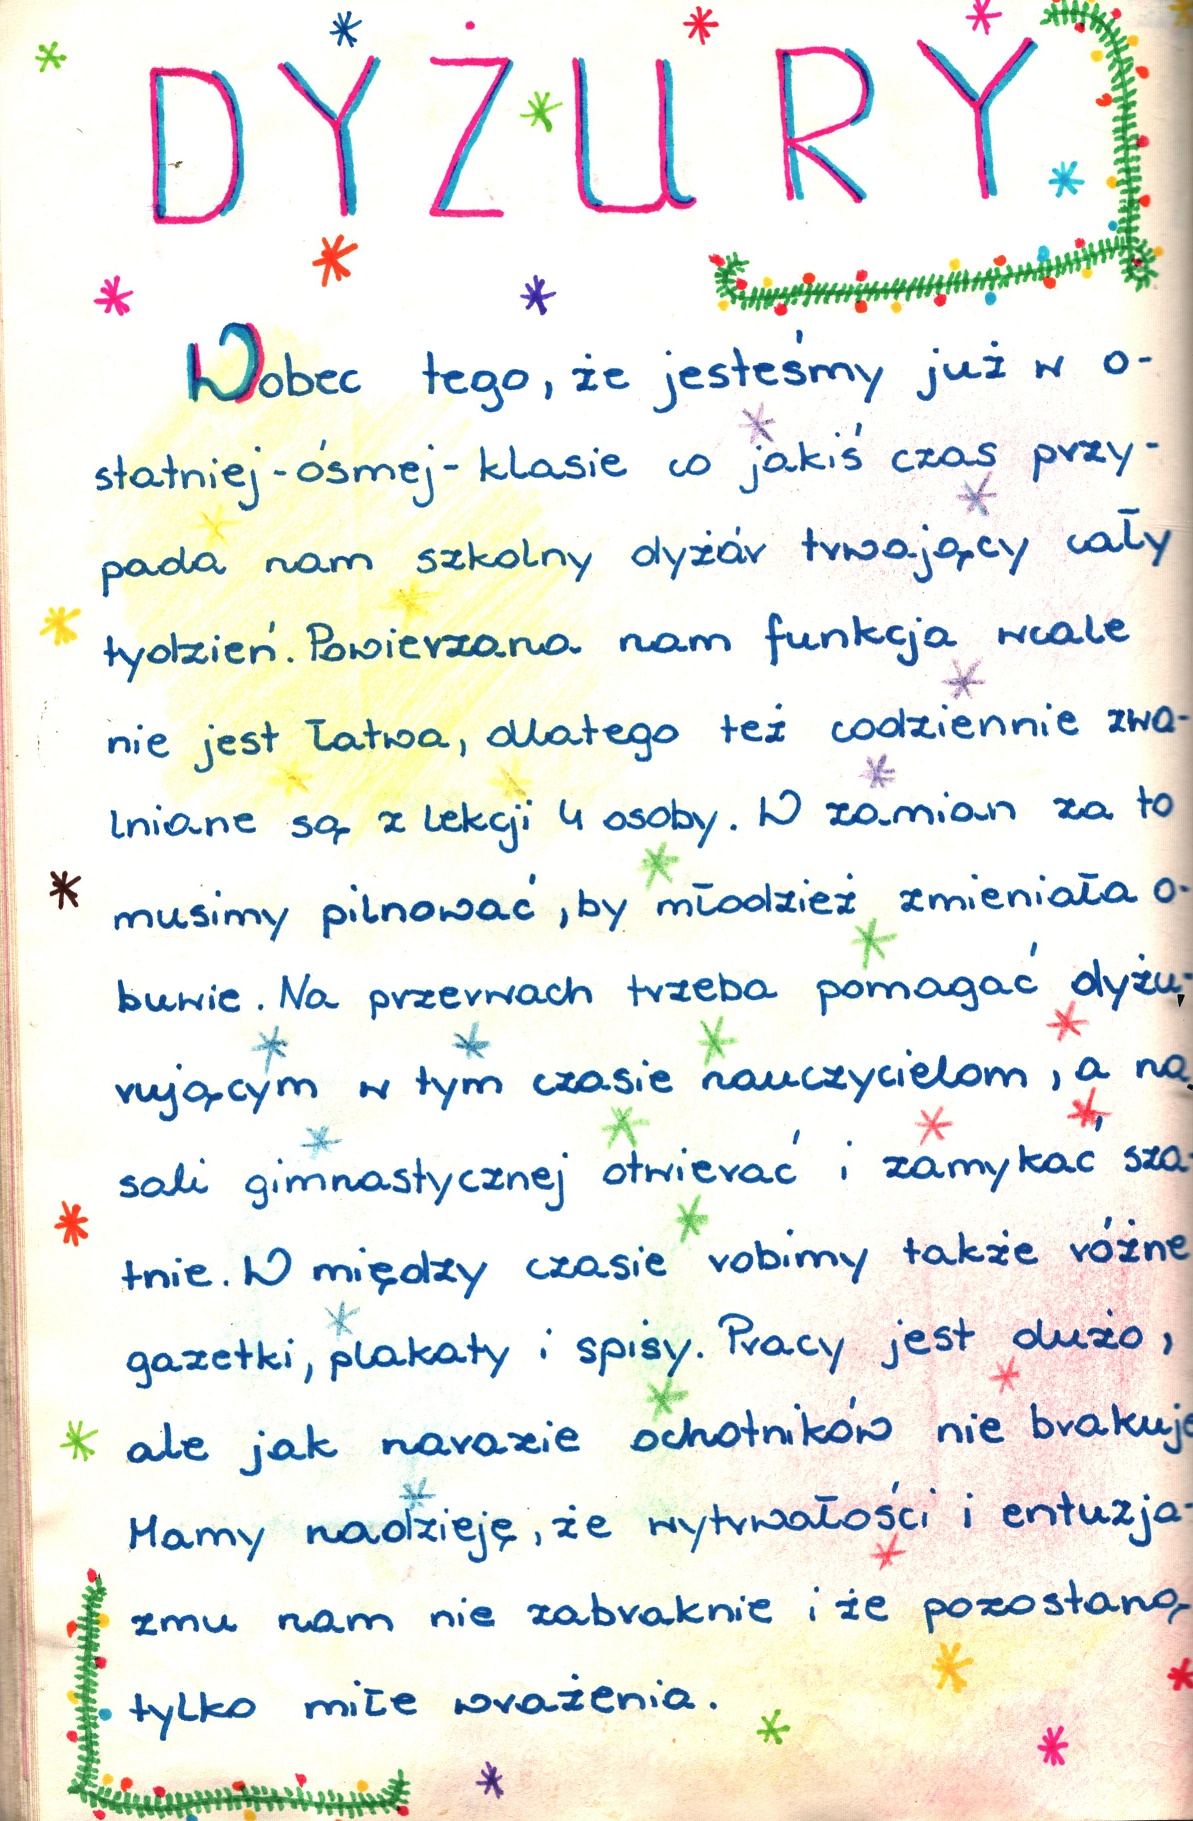 DYŻURY
Wobec tego, że jesteśmy już w o-
statniej - ósmej - klasie co jakiś czas przy-
pada nam szkolny dyżór trwający cały
tydzień. Powierzana nam funkcja wcale
nie jest łatwa, dlatego też codziennie zwa-
lniane są z lekcji 4 osoby. W zamian za to
musimy pilnować, by młodzież zmieniała o-
buwie. Na przerwach trzeba pomagać dyżu-
rującym w tym czasie nauczycielom, a na
sali gimnastycznej otwierać i zamykać sza-
tnie. W między czasie robimy także różne
gazetki, plakaty i spisy. Pracy jest dużo,
ale jak narazie ochotników nie brakuje
Mamy nadzieję, że wytrwałości i entuzja-
zmu nam nie zabraknie i że pozostaną
tylko miłe wrażenia.